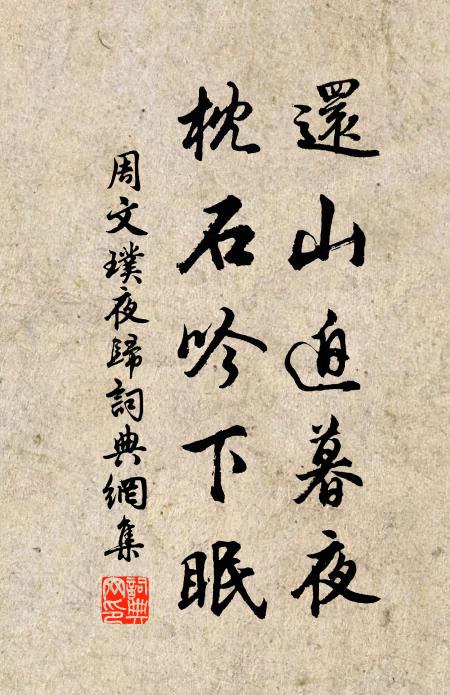 還山迫暮夜
枕石吟下眠
周文璞夜歸詞典網集